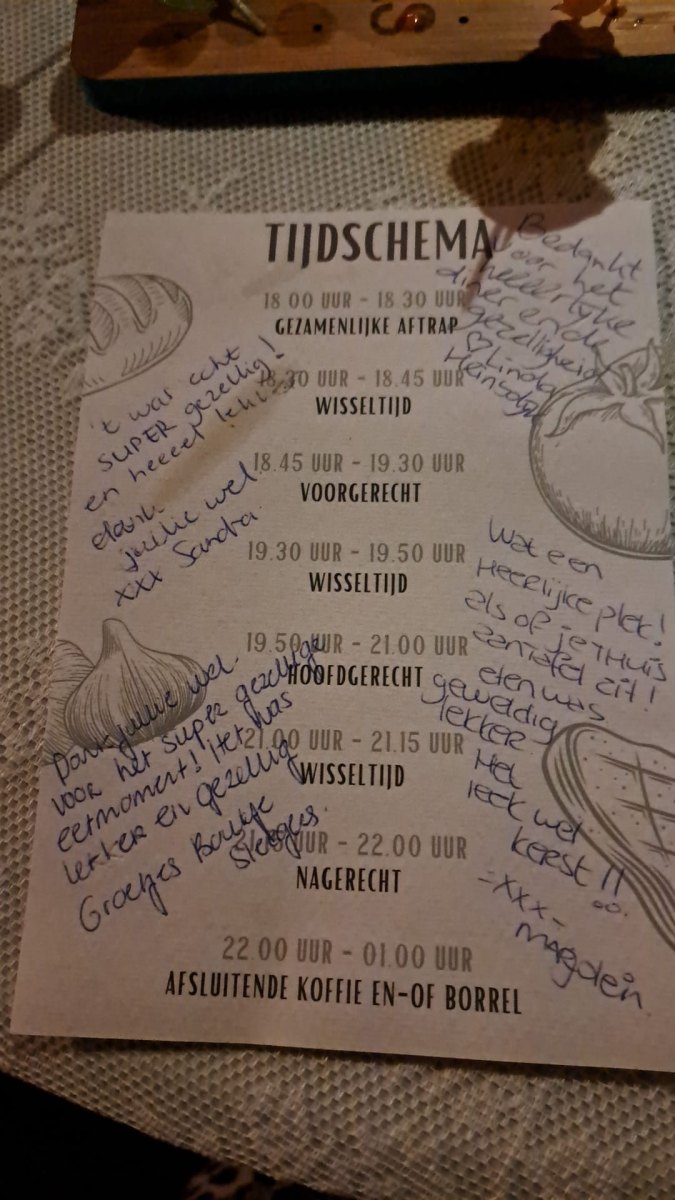 TIJDSCHEMA
18 00 UUR - 18 30 UUR
GEZAMENLIJKE AFTRAP
18.30 UUR - 18.45 UUR
WISSELTIJD
18.45 UUR - 19.30 UUR
VOORGERECHT
19.30 UUR - 19.50 UUR
WISSELTIJD
19.50 UUR - 21.00 UUR
HOOFDGERECHT
21.00 UUR - 21.15 UUR
WISSELTIJD
UUR - 22.00 UUR
NAGERECHT
22.00 UUR - 01.00 UUR
AFSLUITENDE KOFFIE EN-OF BORREL
Bedankt
voor het
heeerlijke
diner en de
gezelligheid
♡ Linda
't was echt
SUPER gezellig!
en heeeel
dank
jullie wel
xxx Sandra
Wat een
Heerlijke plek!
als of je THUIS
aan tafel zit!
eten was
geweldig
lekker
Het
leek wel
kerst!!
-xxx-
Marjolein
Dank jullie wel
voor het super gezellige
eetmoment! Het was
lekker en gezellig
Groetjes